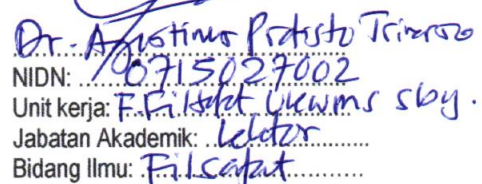 Dr. Agustinus Pratisto Trinarso
NIDN: 0715027002
Unit kerja: F. Filsafat UKWMS Sby.
Jabatan Akademik: Lektor
Bidang Ilmu: Filsafat